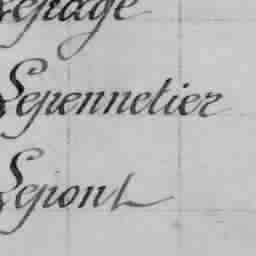 Lepage
Lepennetier
Lepont